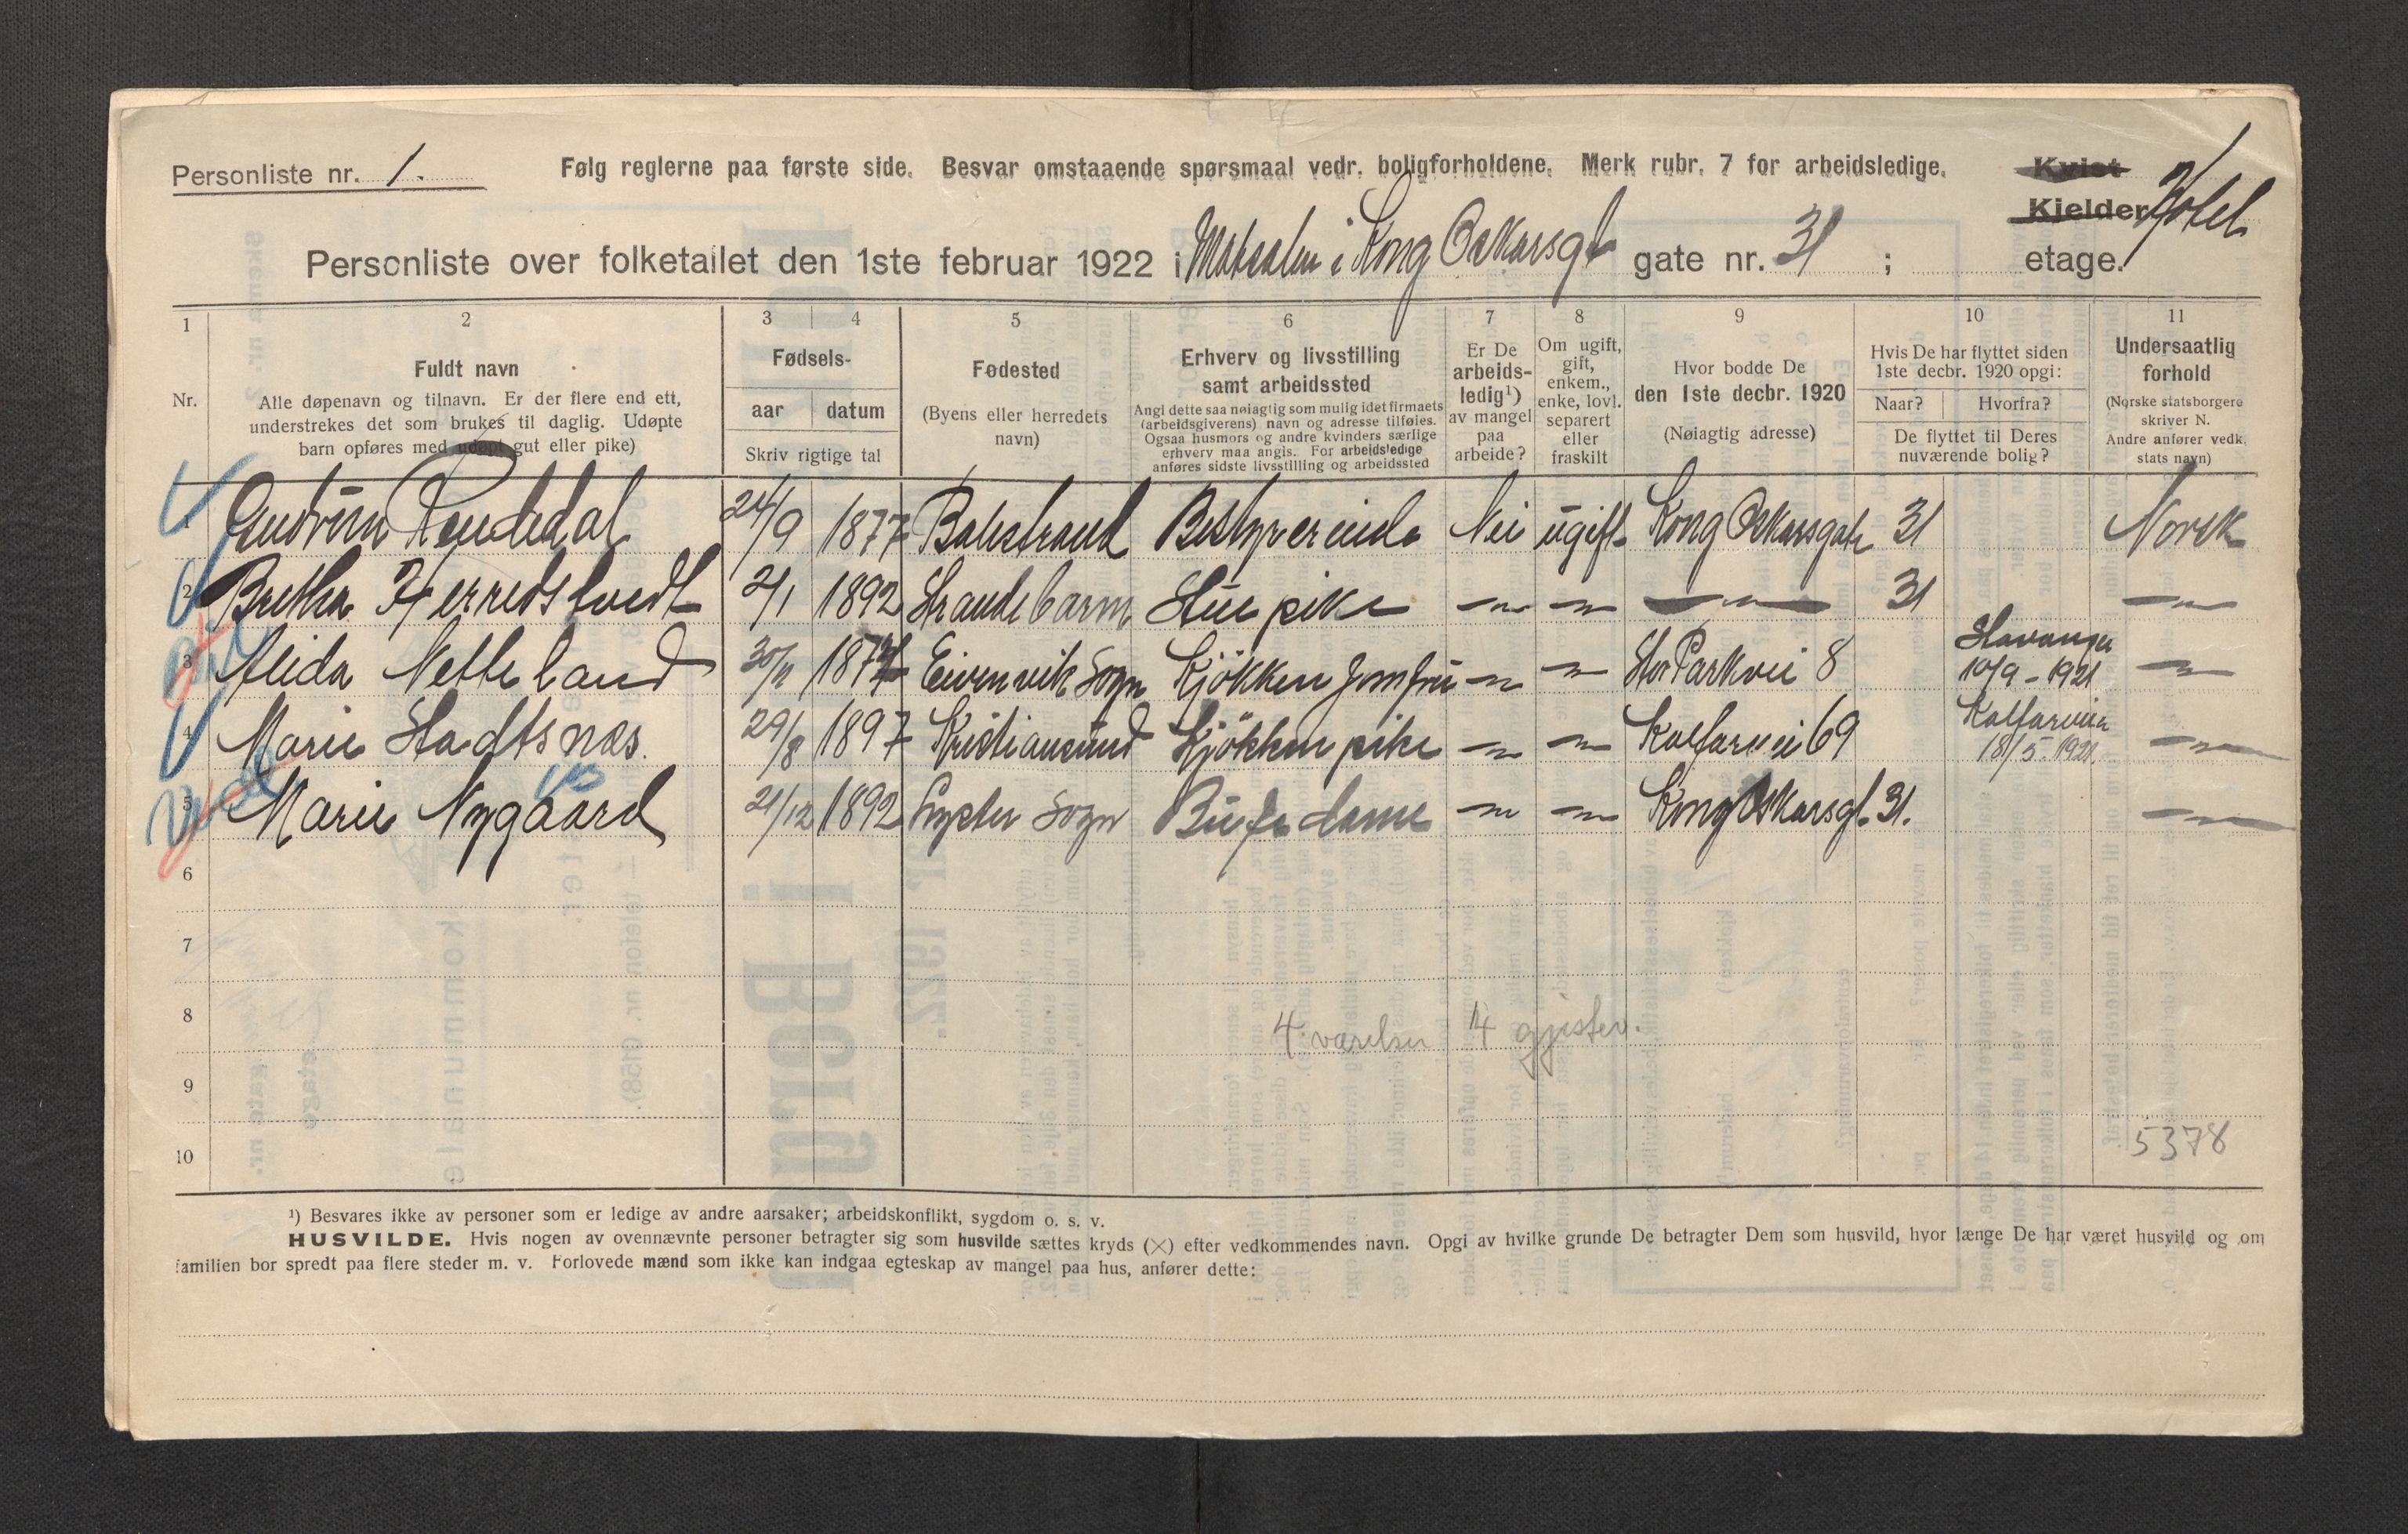 Personliste nr. 1.
Følg reglerne paa første side. Besvar omstaaende spørsmaal vedr. boligforholdene. Merk rubr. 7 for arbeidsledige.
Kvist
Kjelder Hotel
Personliste over folketallet den 1ste februar 1922 i Matsalen i Kong Oskarsgt gate nr. 31 ; etage.
1 2 3 4 5 6 7 8 9 10 11
Nr.
Fuldt navn
Alle døpenavn og tilnavn. Er der flere end ett,
understrekes det som brukes til daglig. Udøpte
barn opføres med udøpt gut eller pike)
Fødsels-
aar datum
Skriv rigtige tal
Fødested
(Byens eller herredets
navn)
Erhverv og livsstilling
samt arbeidssted
Angi dette saa nøiagtig som mulig idet firmaets
(arbeidsgiverens) navn og adresse tilføies.
Ogsaa husmors og andre kvinders særlige
erhverv maa angis. For arbeidsledige
anføres sidste livsstilling og arbeidssted
Er De
arbeids-
ledig¹)
av mangel
paa
arbeide?
Om ugift,
gift,
enkem.,
enke, lovl.
separert
eller
fraskilt
Hvor bodde De
den 1ste decbr. 1920
(Nøiagtig adresse)
Hvis De har flyttet siden
1ste decbr. 1920 opgi:
Naar? Hvorfra?
De flyttet til Deres
nuværende bolig?
Undersaatlig
forhold
(Norske statsborgere
skriver N.
Andre anfører vedk.
stats navn)
Gudrun 24/9 1877 Balestrand Bestyrerinde Nei ugift Kong Oskarsgate 31 Norsk
2 Bretha Herredstvedt 2/1 1892 Strandebarm Stuepike 31
3 Alida Netteland 30/11 Eivenvik Sogn Kjökken Jomfru Str Parkvei 8 Stavanger
10/9 - 1921
4 Marie Stadtsnæs. 29/8 1897 Kristiansund Kjökken pike Kalfarvei 69 Kalfarveien
18/5 1921
5 Marie Nygaard 21/12 1892 Lyster Sogn Bufe dame Kong Oskarsgt. 31.
6
7
8 4 værelser 4 gjester.
9
10 5378
¹) Besvares ikke av personer som er ledige av andre aarsaker; arbeidskonflikt, sygdom o. s. v.
HUSVILDE. Hvis nogen av ovennævnte personer betragter sig som husvilde sættes kryds (×) efter vedkommendes navn. Opgi av hvilke grunde De betragter Dem som husvild, hvor længe De har været husvild og om
familien bor spredt paa flere steder m. v. Forlovede mænd som ikke kan indgaa egteskap av mangel paa hus, anfører dette: